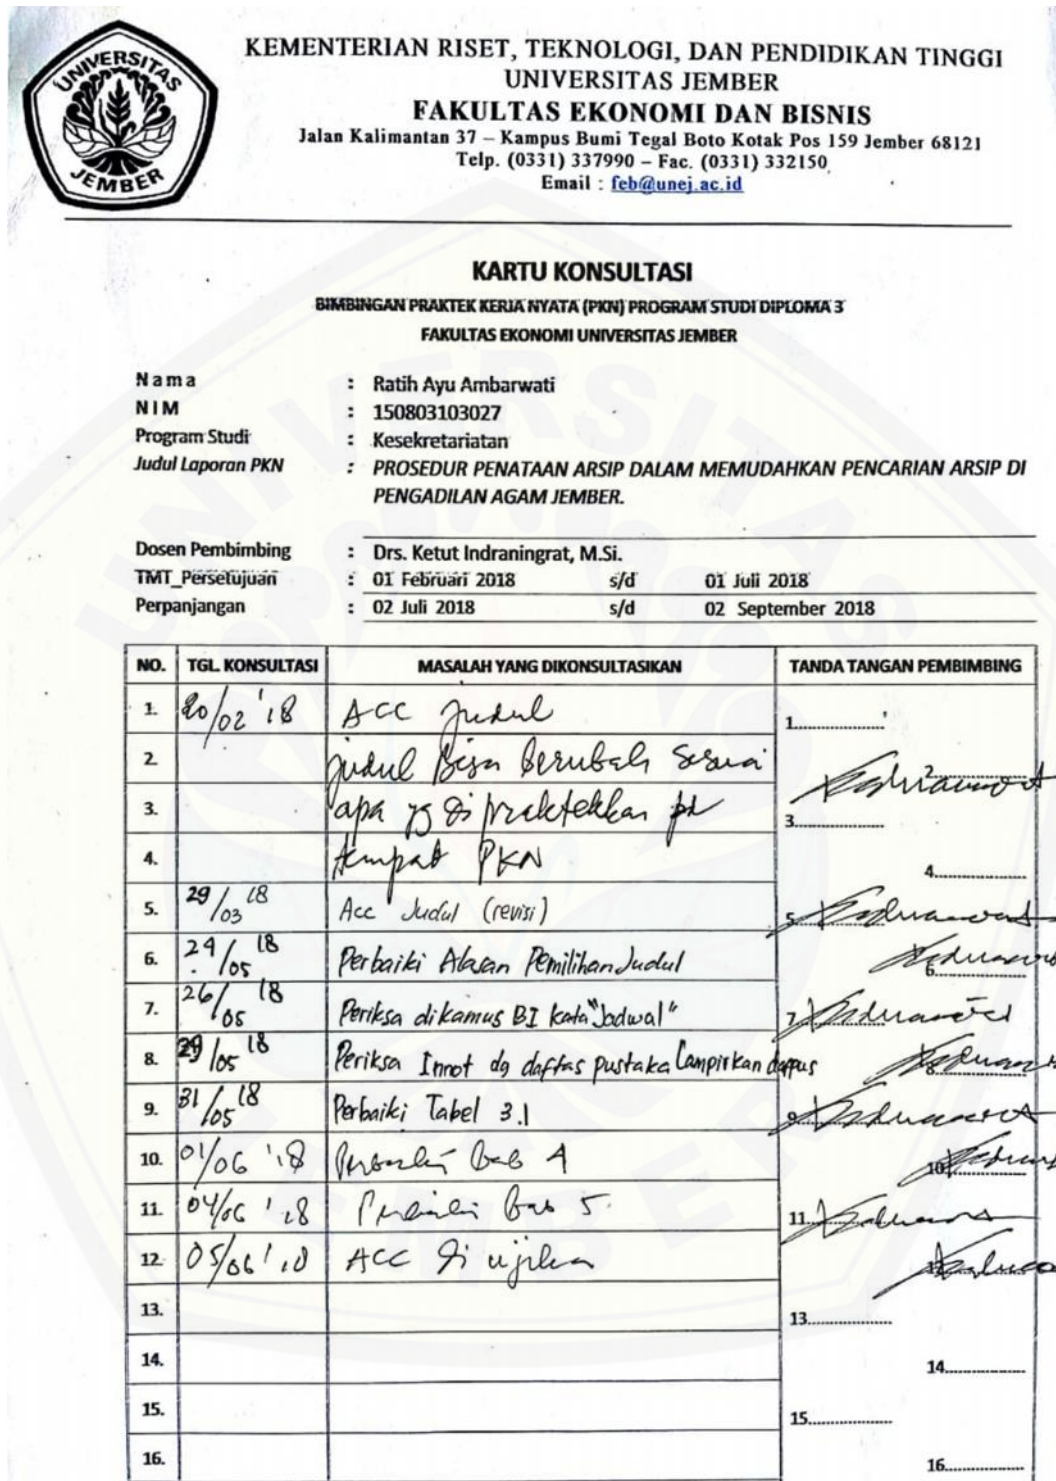 UNIVERSITAS
JEMBER
KEMENTERIAN RISET, TEKNOLOGI, DAN PENDIDIKAN TINGGI
UNIVERSITAS JEMBER
FAKULTAS EKONOMI DAN BISNIS
Jalan Kalimantan 37 – Kampus Bumi Tegal Boto Kotak Pos 159 Jember 68121
Telp. (0331) 337990 – Fac. (0331) 332150
Email : feb@unej.ac.id
KARTU KONSULTASI
BIMBINGAN PRAKTEK KERJA NYATA (PKN) PROGRAM STUDI DIPLOMA 3
FAKULTAS EKONOMI UNIVERSITAS JEMBER
Nama : Ratih Ayu Ambarwati
NIM : 150803103027
Program Studi : Kesekretariatan
Judul Laporan PKN : PROSEDUR PENATAAN ARSIP DALAM MEMUDAHKAN PENCARIAN ARSIP DI
PENGADILAN AGAM JEMBER.
Dosen Pembimbing : Drs. Ketut Indraningrat, M.Si.
TMT_Persetujuan : 01 Februari 2018 s/d 01 Juli 2018
Perpanjangan : 02 Juli 2018 s/d 02 September 2018
NO. TGL. KONSULTASI MASALAH YANG DIKONSULTASIKAN TANDA TANGAN PEMBIMBING
1. 20/02 '18 ACC Judul 1...............
2. judul bisa berubah sesuai 2...............
3. apa yg di praktekkan pd 3...............
4. tempat PKN 4...............
5. 29/03 18 Acc Judul (revisi) 5...............
6. 24/05 18 Perbaiki Alasan Pemilihan Judul 6...............
7. 26/05 18 Periksa dikamus BI kata "Jadwal" 7...............
8. 29/05 18 Periksa Innot dg daftas pustaka Lampirkan dapus 8...............
9. 31/05 18 Perbaiki Tabel 3.1 9...............
10. 01/06 '18 Perbaiki bab 4 10...............
11. 04/06 '18 Perbaiki bab 5. 11...............
12. 05/06 '18 ACC di ujikan
13. 13...............
14. 14...............
15. 15...............
16. 16...............